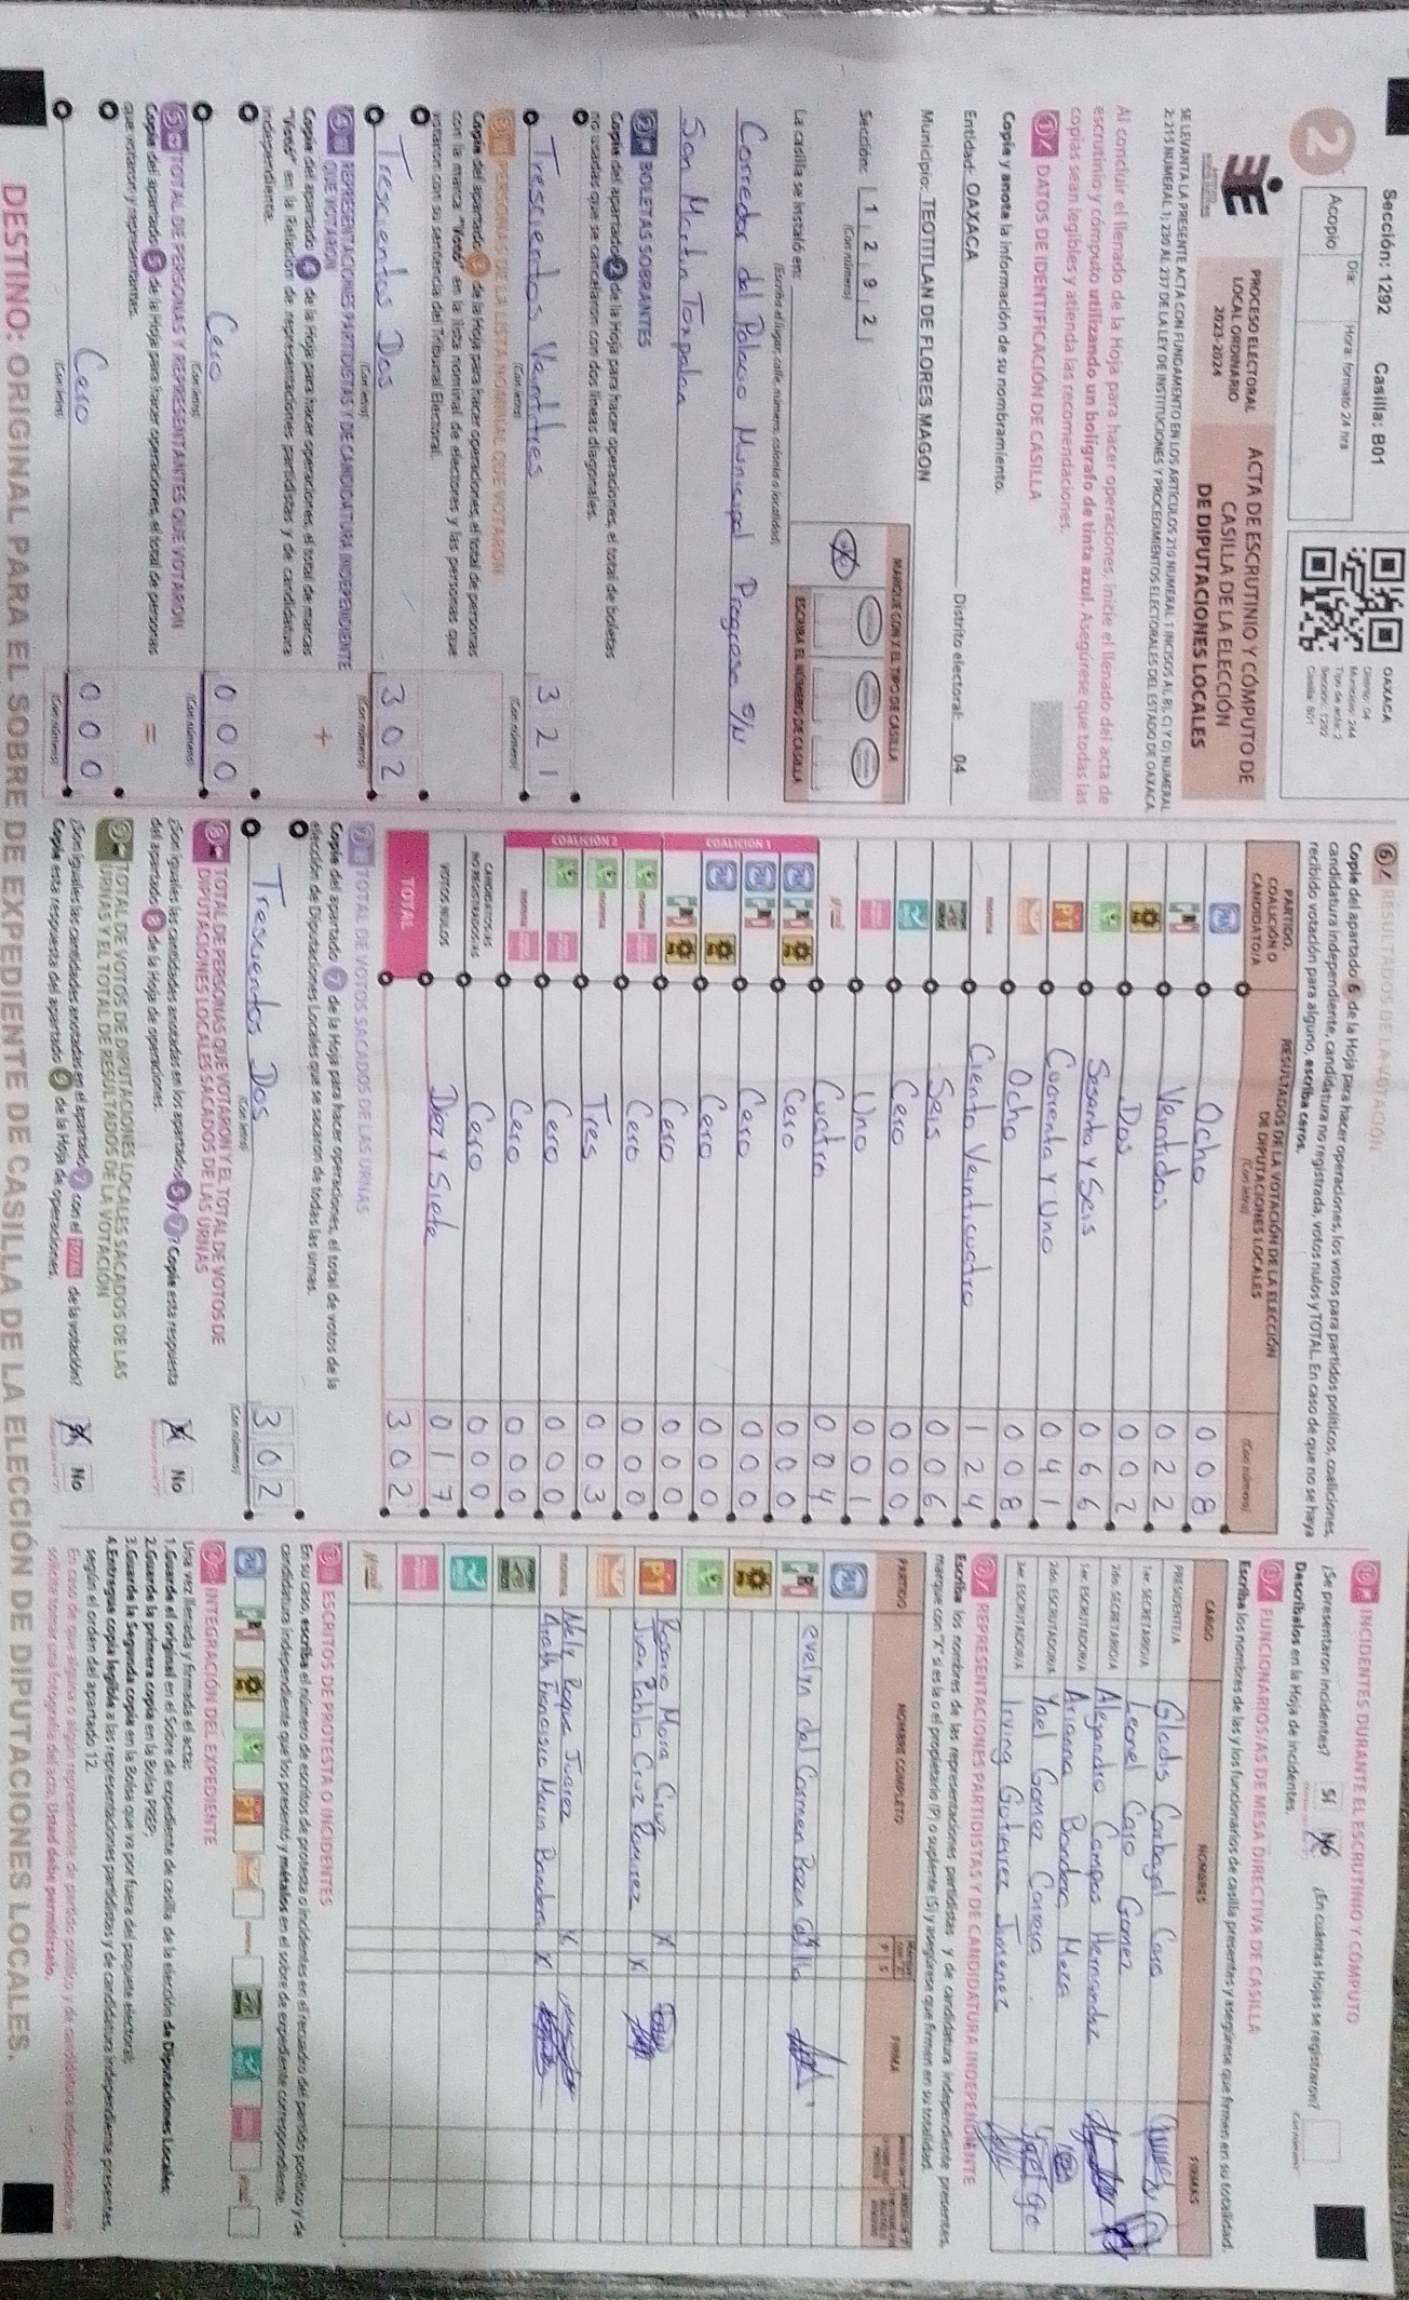 Sección: 1292 Casilla: B01
2
Día:
Hora: formato 24 hrs
Acopio
OAXACA
Distrito: 04
Municipio: 244
Tipo de acta: 2
Sección: 1292
Casilla: B01
PROCESO ELECTORAL
LOCAL ORDINARIO
2023-2024
ACTA DE ESCRUTINIO Y CÓMPUTO DE
CASILLA DE LA ELECCIÓN
DE DIPUTACIONES LOCALES
SE LEVANTA LA PRESENTE ACTA CON FUNDAMENTO EN LOS ARTÍCULOS 210 NUMERAL 1 INCISOS A), B), C) Y D) NUMERAL
2; 215 NUMERAL 1; 230 AL 237 DE LA LEY DE INSTITUCIONES Y PROCEDIMIENTOS ELECTORALES DEL ESTADO DE OAXACA.
Al concluir el llenado de la Hoja para hacer operaciones, inicie el llenado del acta de
escrutinio y cómputo utilizando un bolígrafo de tinta azul. Asegúrese que todas las
copias sean legibles y atienda las recomendaciones.
1 DATOS DE IDENTIFICACIÓN DE CASILLA
Copie y anote la información de su nombramiento.
Entidad: OAXACA Distrito electoral: 04
Municipio: TEOTITLAN DE FLORES MAGON
Sección: 1 2 9 2
(Con número)
MARQUE CON X EL TIPO DE CASILLA
ESCRIBA EL NÚMERO DE CASILLA
La casilla se instaló en:
(Escriba el lugar, calle, número, colonia o localidad)
Corredor del Palacio Municipal Progreso S/N
San Martin Toxpalan
2 BOLETAS SOBRANTES
Copie del apartado 2 de la Hoja para hacer operaciones, el total de boletas
no usadas que se cancelaron con dos líneas diagonales.
Trescientos Veintitres 3 2 1
(Con letra) (Con número)
3 PERSONAS DE LA LISTA NOMINAL QUE VOTARON
Copie del apartado 3 de la Hoja para hacer operaciones, el total de personas
con la marca "Votó" en la lista nominal de electores y las personas que
votaron con su sentencia del Tribunal Electoral.
Trescientos Dos 3 0 2
(Con letra) (Con número)
4 REPRESENTACIONES PARTIDISTAS Y DE CANDIDATURA INDEPENDIENTE
QUE VOTARON
+
Copie del apartado 4 de la Hoja para hacer operaciones, el total de marcas
"Votó" en la Relación de representaciones partidistas y de candidatura
independiente.
Cero 0 0 0
(Con letra) (Con número)
5 TOTAL DE PERSONAS Y REPRESENTANTES QUE VOTARON
=
Copie del apartado 5 de la Hoja para hacer operaciones, el total de personas
que votaron y representantes.
Cero 0 0 0
(Con letra) (Con número)
6 RESULTADOS DE LA VOTACIÓN
Copie del apartado 6 de la Hoja para hacer operaciones, los votos para partidos políticos, coaliciones,
candidatura independiente, candidatura no registrada, votos nulos y TOTAL. En caso de que no se haya
recibido votación para alguno, escriba ceros.
PARTIDO,
COALICIÓN O
CANDIDATO/A
RESULTADOS DE LA VOTACIÓN DE LA ELECCIÓN
DE DIPUTACIONES LOCALES
(Con letra) (Con número)
PAN Ocho 0 0 8
PRI Veintidos 0 2 2
PRD Dos 0 0 2
Sesenta y Seis 0 6 6
PT Cuarenta y Uno 0 4 1
Ocho 0 0 8
morena Ciento Veinticuatro 1 2 4
Seis 0 0 6
Cero 0 0 0
Uno 0 0 1
Cuatro 0 0 4
COALICIÓN 1
PAN PRI PRD Cero 0 0 0
PAN PRI Cero 0 0 0
PAN PRD Cero 0 0 0
PRI PRD Cero 0 0 0
COALICIÓN 2
morena Cero 0 0 0
morena Tres 0 0 3
Cero 0 0 0
morena Cero 0 0 0
CANDIDATOS/AS
NO REGISTRADOS/AS Cero 0 0 0
VOTOS NULOS Diez y Siete 0 1 7
TOTAL 3 0 2
7 TOTAL DE VOTOS SACADOS DE LAS URNAS
Copie del apartado 7 de la Hoja para hacer operaciones, el total de votos de la
elección de Diputaciones Locales que se sacaron de todas las urnas.
Trescientos Dos 3 0 2
(Con letra) (Con número)
8 TOTAL DE PERSONAS QUE VOTARON Y EL TOTAL DE VOTOS DE
DIPUTACIONES LOCALES SACADOS DE LAS URNAS
¿Son iguales las cantidades anotadas en los apartados 5 y 7? Copie esta respuesta
del apartado 8 de la Hoja de operaciones.
No
9 TOTAL DE VOTOS DE DIPUTACIONES LOCALES SACADOS DE LAS
URNAS Y EL TOTAL DE RESULTADOS DE LA VOTACIÓN
¿Son iguales las cantidades anotadas en el apartado 7 con el TOTAL de la votación?
Copie esta respuesta del apartado 9 de la Hoja de operaciones.
No
INCIDENTES DURANTE EL ESCRUTINIO Y CÓMPUTO
¿Se presentaron incidentes? Sí No ¿En cuántas Hojas se registraron?
Descríbalos en la Hoja de incidentes.
FUNCIONARIOS/AS DE MESA DIRECTIVA DE CASILLA
Escriba los nombres de las y los funcionarios de casilla presentes y asegúrese que firmen en su totalidad.
CARGO NOMBRES FIRMAS
PRESIDENTE/A Gladis Carbajal Caro
1er. SECRETARIO/A Leonel Caro Gomez
2do. SECRETARIO/A Alejandro Campos Hernandez
1er. ESCRUTADOR/A Arianna Bandera Meza
2do. ESCRUTADOR/A Yael Gomez Carrera
3er. ESCRUTADOR/A Irving Gutierrez Jimenez
REPRESENTACIONES PARTIDISTAS Y DE CANDIDATURA INDEPENDIENTE
Escriba los nombres de las representaciones partidistas y de candidatura independiente presentes,
marque con "X" si es la o el propietario (P) o suplente (S) y asegúrese que firmen en su totalidad.
PARTIDO NOMBRE COMPLETO P S FIRMA
PAN
PRI evelyn del Carmen
PRD
PT Rosario Mora Cruz X
Juan Pablo Cruz Ramirez X
morena Nely Roque Juarez X
X
ESCRITOS DE PROTESTA O INCIDENTES
En su caso, escriba el número de escritos de protesta o incidentes en el recuadro del partido político y de
candidatura independiente que los presentó y métalos en el sobre de expediente correspondiente.
INTEGRACIÓN DEL EXPEDIENTE
Una vez llenada y firmada el acta:
1. Guarde el original en el Sobre de expediente de casilla de la elección de Diputaciones Locales;
2. Guarde la primera copia en la Bolsa PREP;
3. Guarde la Segunda copia en la Bolsa que va por fuera del paquete electoral;
4. Entregue copia legible a las representaciones partidistas y de candidatura independiente presentes,
según el orden del apartado 12.
En caso de que alguna o algún representante de partido político y de candidatura independiente le
solicite tomar una fotografía del acta, Usted debe permitírselo.
DESTINO: ORIGINAL PARA EL SOBRE DE EXPEDIENTE DE CASILLA DE LA ELECCIÓN DE DIPUTACIONES LOCALES.